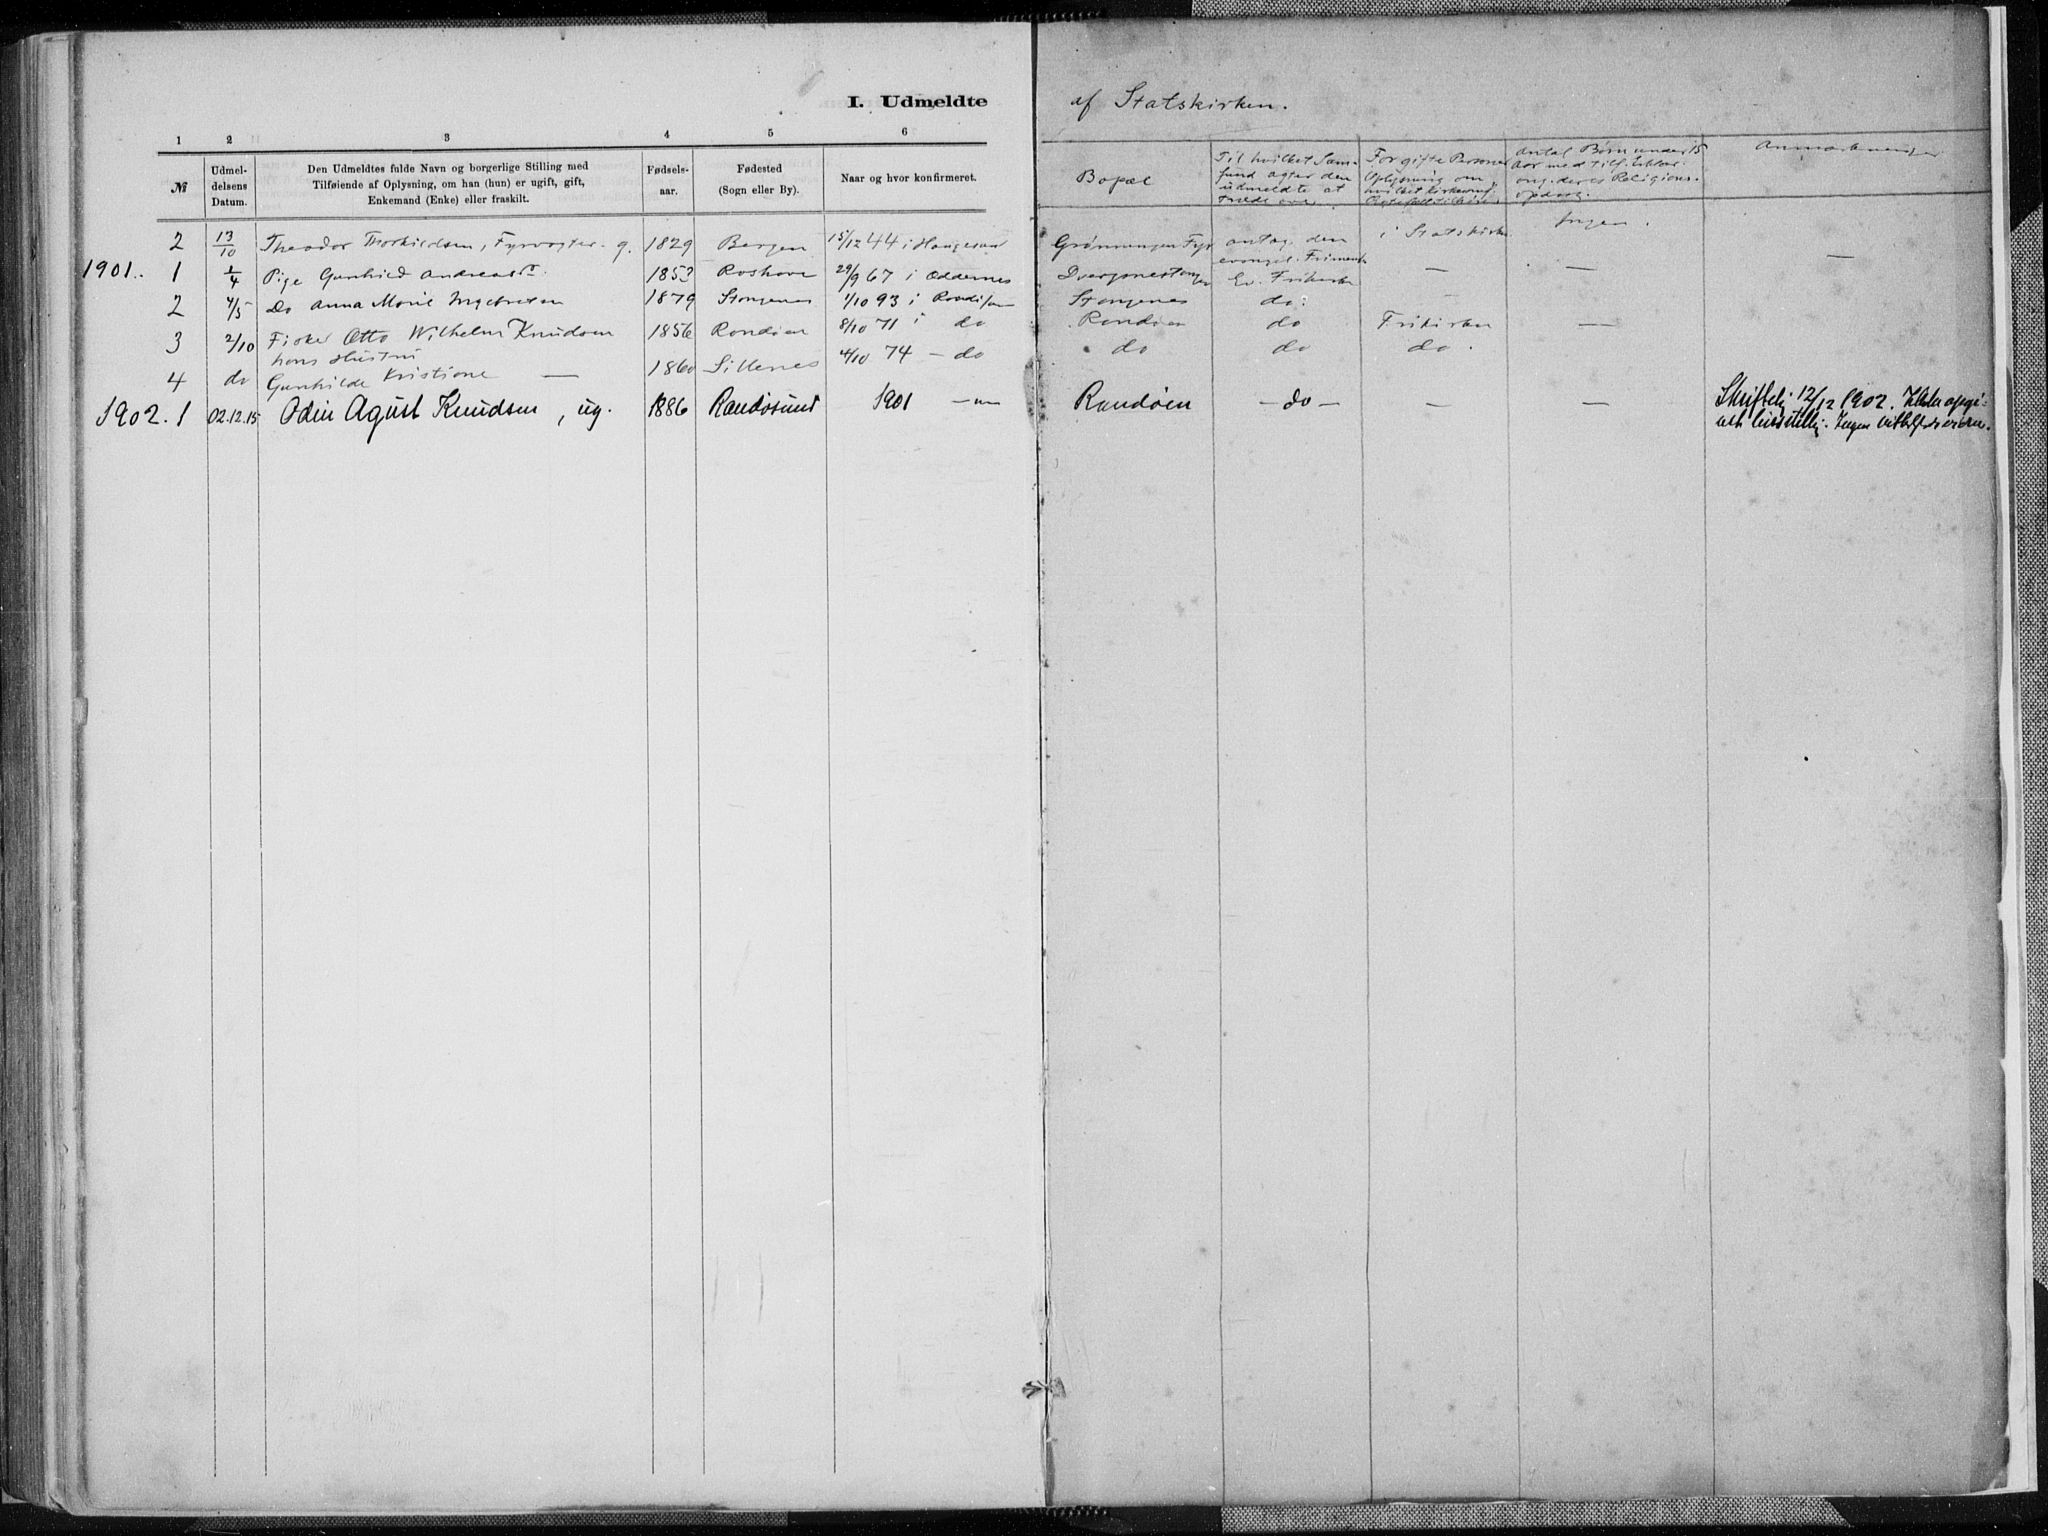 I. Udmeldte af Statskirken.
1 2 3 4 5 6
№
Udmel-
delsens
Datum.
Den Udmeldtes fulde Navn og borgerlige Stilling med
Tilføiende af Oplysning, om han (hun) er ugift, gift,
Enkemand (Enke) eller fraskilt.
Fødsels-
aar.
Fødested
(Sogn eller By).
Naar og hvor konfirmeret.
Bopæl
Til hvilket Sam-
fund agter den
udmeldte at
træde over.
For gifte Personer
Oplysning om
hvilket
Antal Børn under 15
Aar med
ang. deres Religions-
Anmærkninger
2 13/10 Theodor Thorkildsen, Fyrvogter. g. 1829 Bergen 15/12 44 i Haugesund Grønningen Fyr antag. den i Statskirken Ingen.
evangel. —
1901. 1 1/4 Pige Gunhild Andreasd. 1853 Roshave 29/9 67 i Oddernes Ev. Frikirke — —
2 4/5 Do Anna Marie Ingebretsen 1879 Stangenes 1/10 93 i Stangenes do.
3 2/10 Fisker Otto Wilhelm Knudsen 1856 Randøen 8/10 71 i do Randøen do Frikirken —
hans Hustru
4 do Gunhilde Kristiane — 1860 Sillenes 4/10 74 — do do do do.
1902. 1 02.12.15 Odin Agust Knudsen, ug. 1886 Randøsund 1901 Randøen — do — — — Skriftlig 12/12 1902.